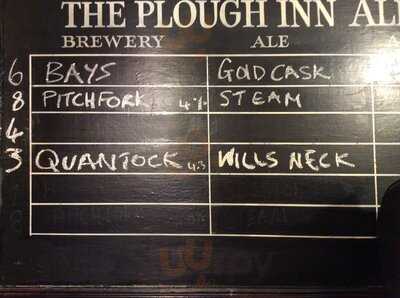 THE PLOUGH INN AL
BREWERY ALE A
6 BAYS GOLD CASK
8 PITCHFORK 4% STEAM
4
3 QUANTOCK 4.3 WILLS NECK